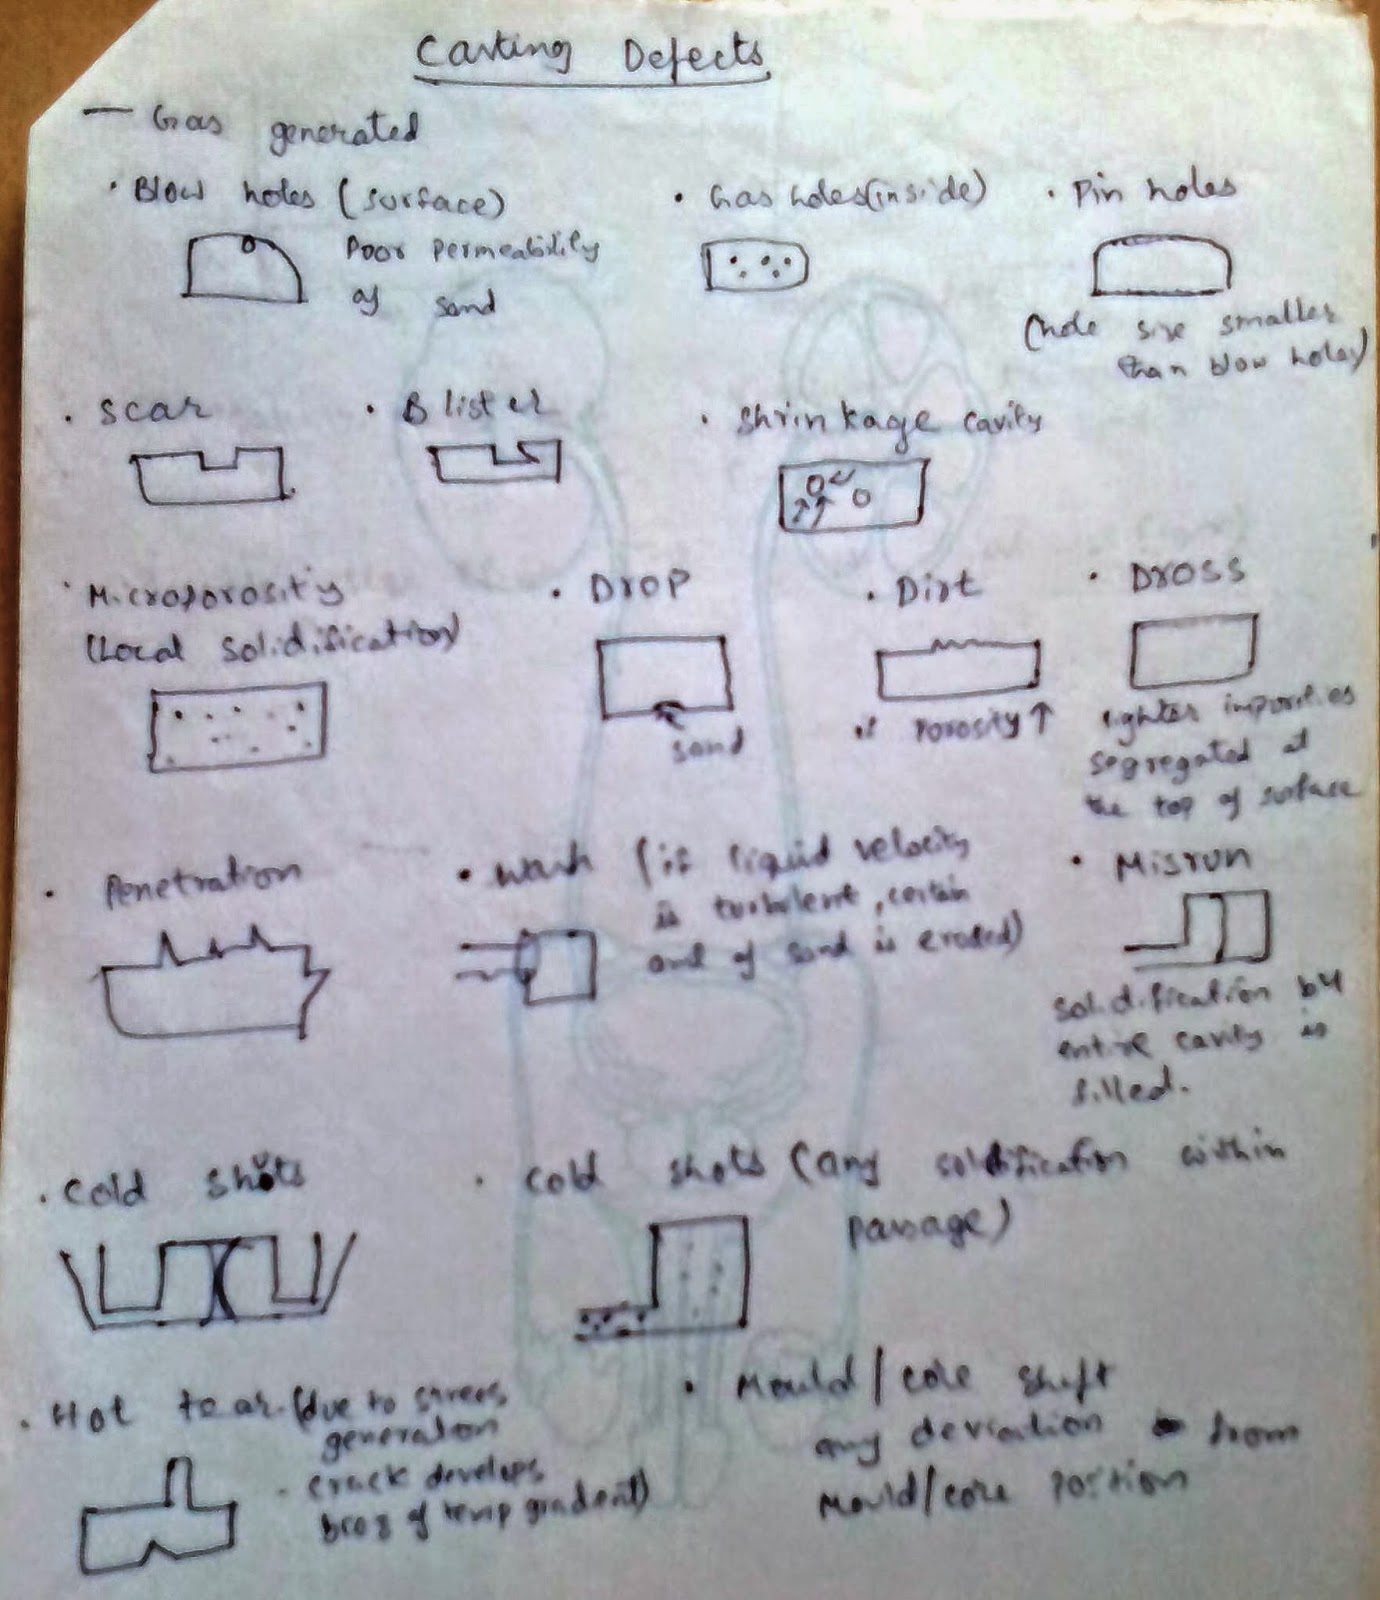 Casting Defects
— Gas generated
• Blow holes (surface)
Poor permeability
of sand
• Gas holes (inside)
• Pin holes
(hole size smaller
than blow holes)
• Scar
• Blister
• Shrinkage cavity
• Microporosity
(Local solidification)
• Drop
sand
• Dirt
if Porosity ↑
• Dross
lighter impurities
segregated at
the top of surface
• Penetration
• Wash (if liquid velocity
is turbulent, certain
amt of sand is eroded)
• Misrun
solidification b4
entire cavity is
filled.
• Cold shots
• Cold shots (any solidification within
passage)
• Hot tear (due to stress
generation
- crack develops
bcoz of temp gradent)
• Mould/core shift
any deviation from
Mould/core position